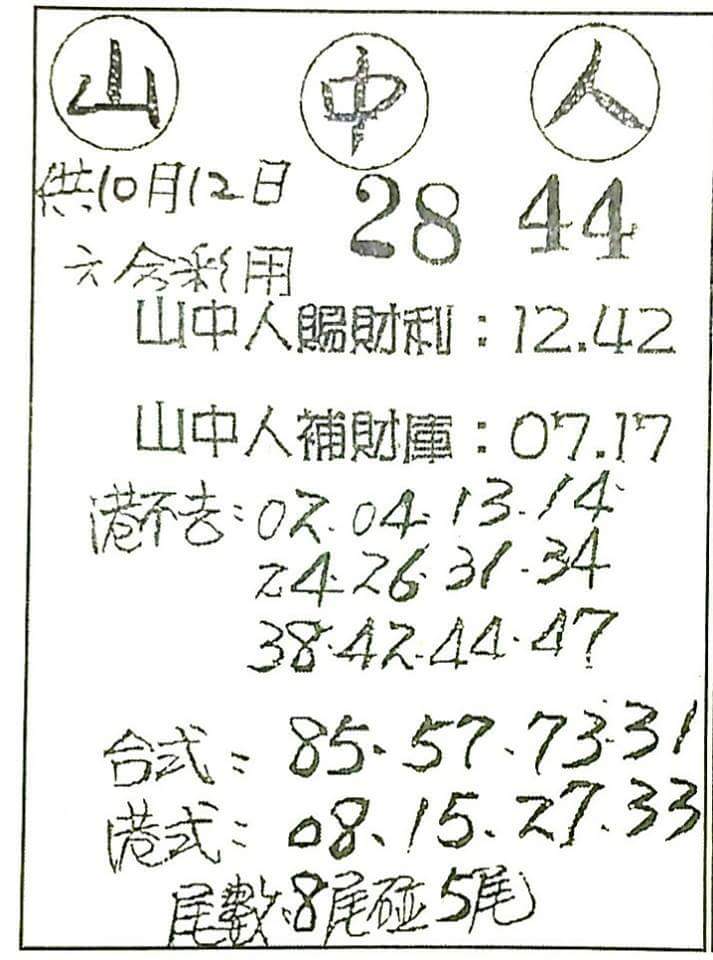 山 中 人
供10月12日 28 44
六合彩用
山中人賜財利：12.42
山中人補財庫：07.17
港不去：02.04.13.14
24.26.31.34
38.42.44.47
台式：85.57.73.31
港式：08.15.27.33
尾數：8尾碰5尾